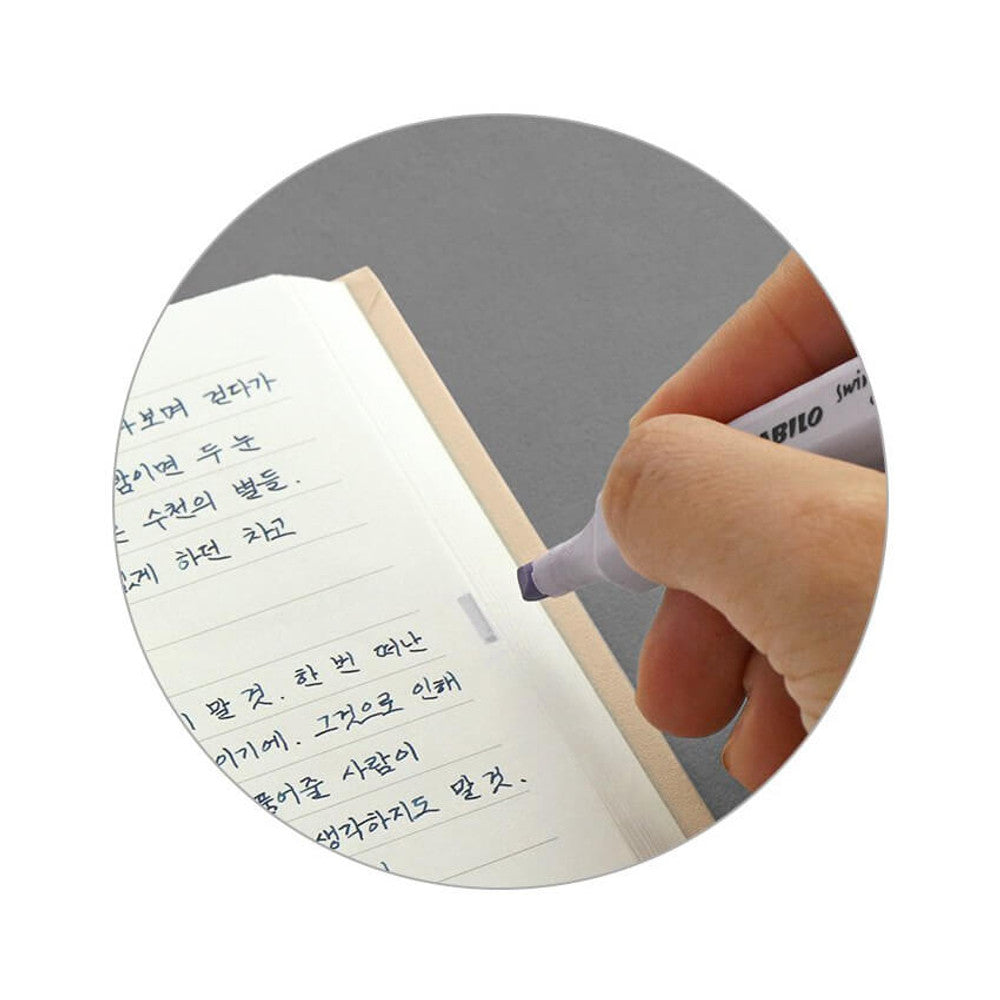 보며 걷다가
밤이면 두 눈
수천의 별들.
있게 하던 차고
말 것. 한 번 떠난
이기에. 그것으로 인해
풀어줄 사람이
생각하지도 말 것.
ABILO
swin